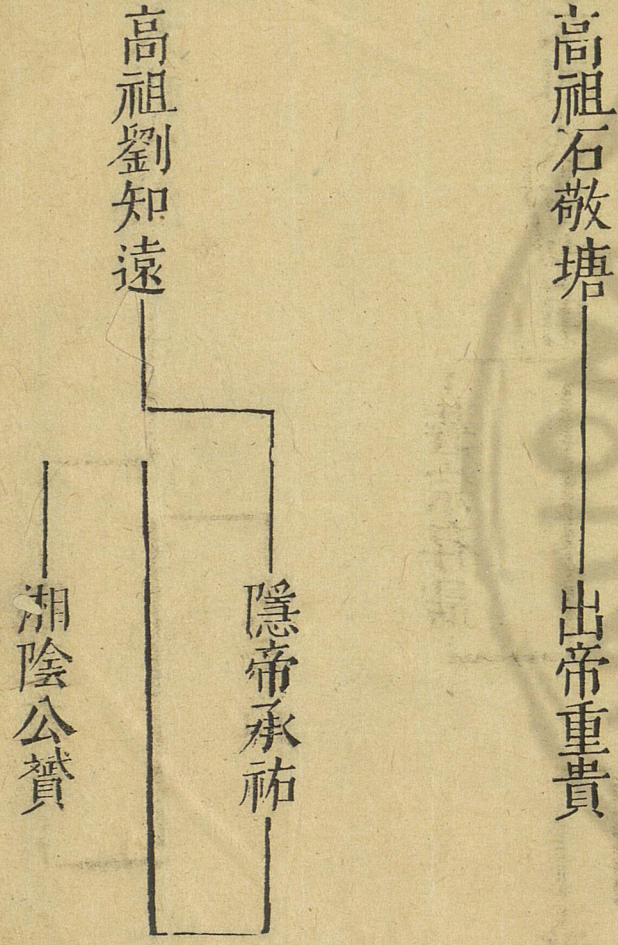 高祖石敬塘
出帝重貴
高祖劉知遠
隱帝承祐
湘陰公贇